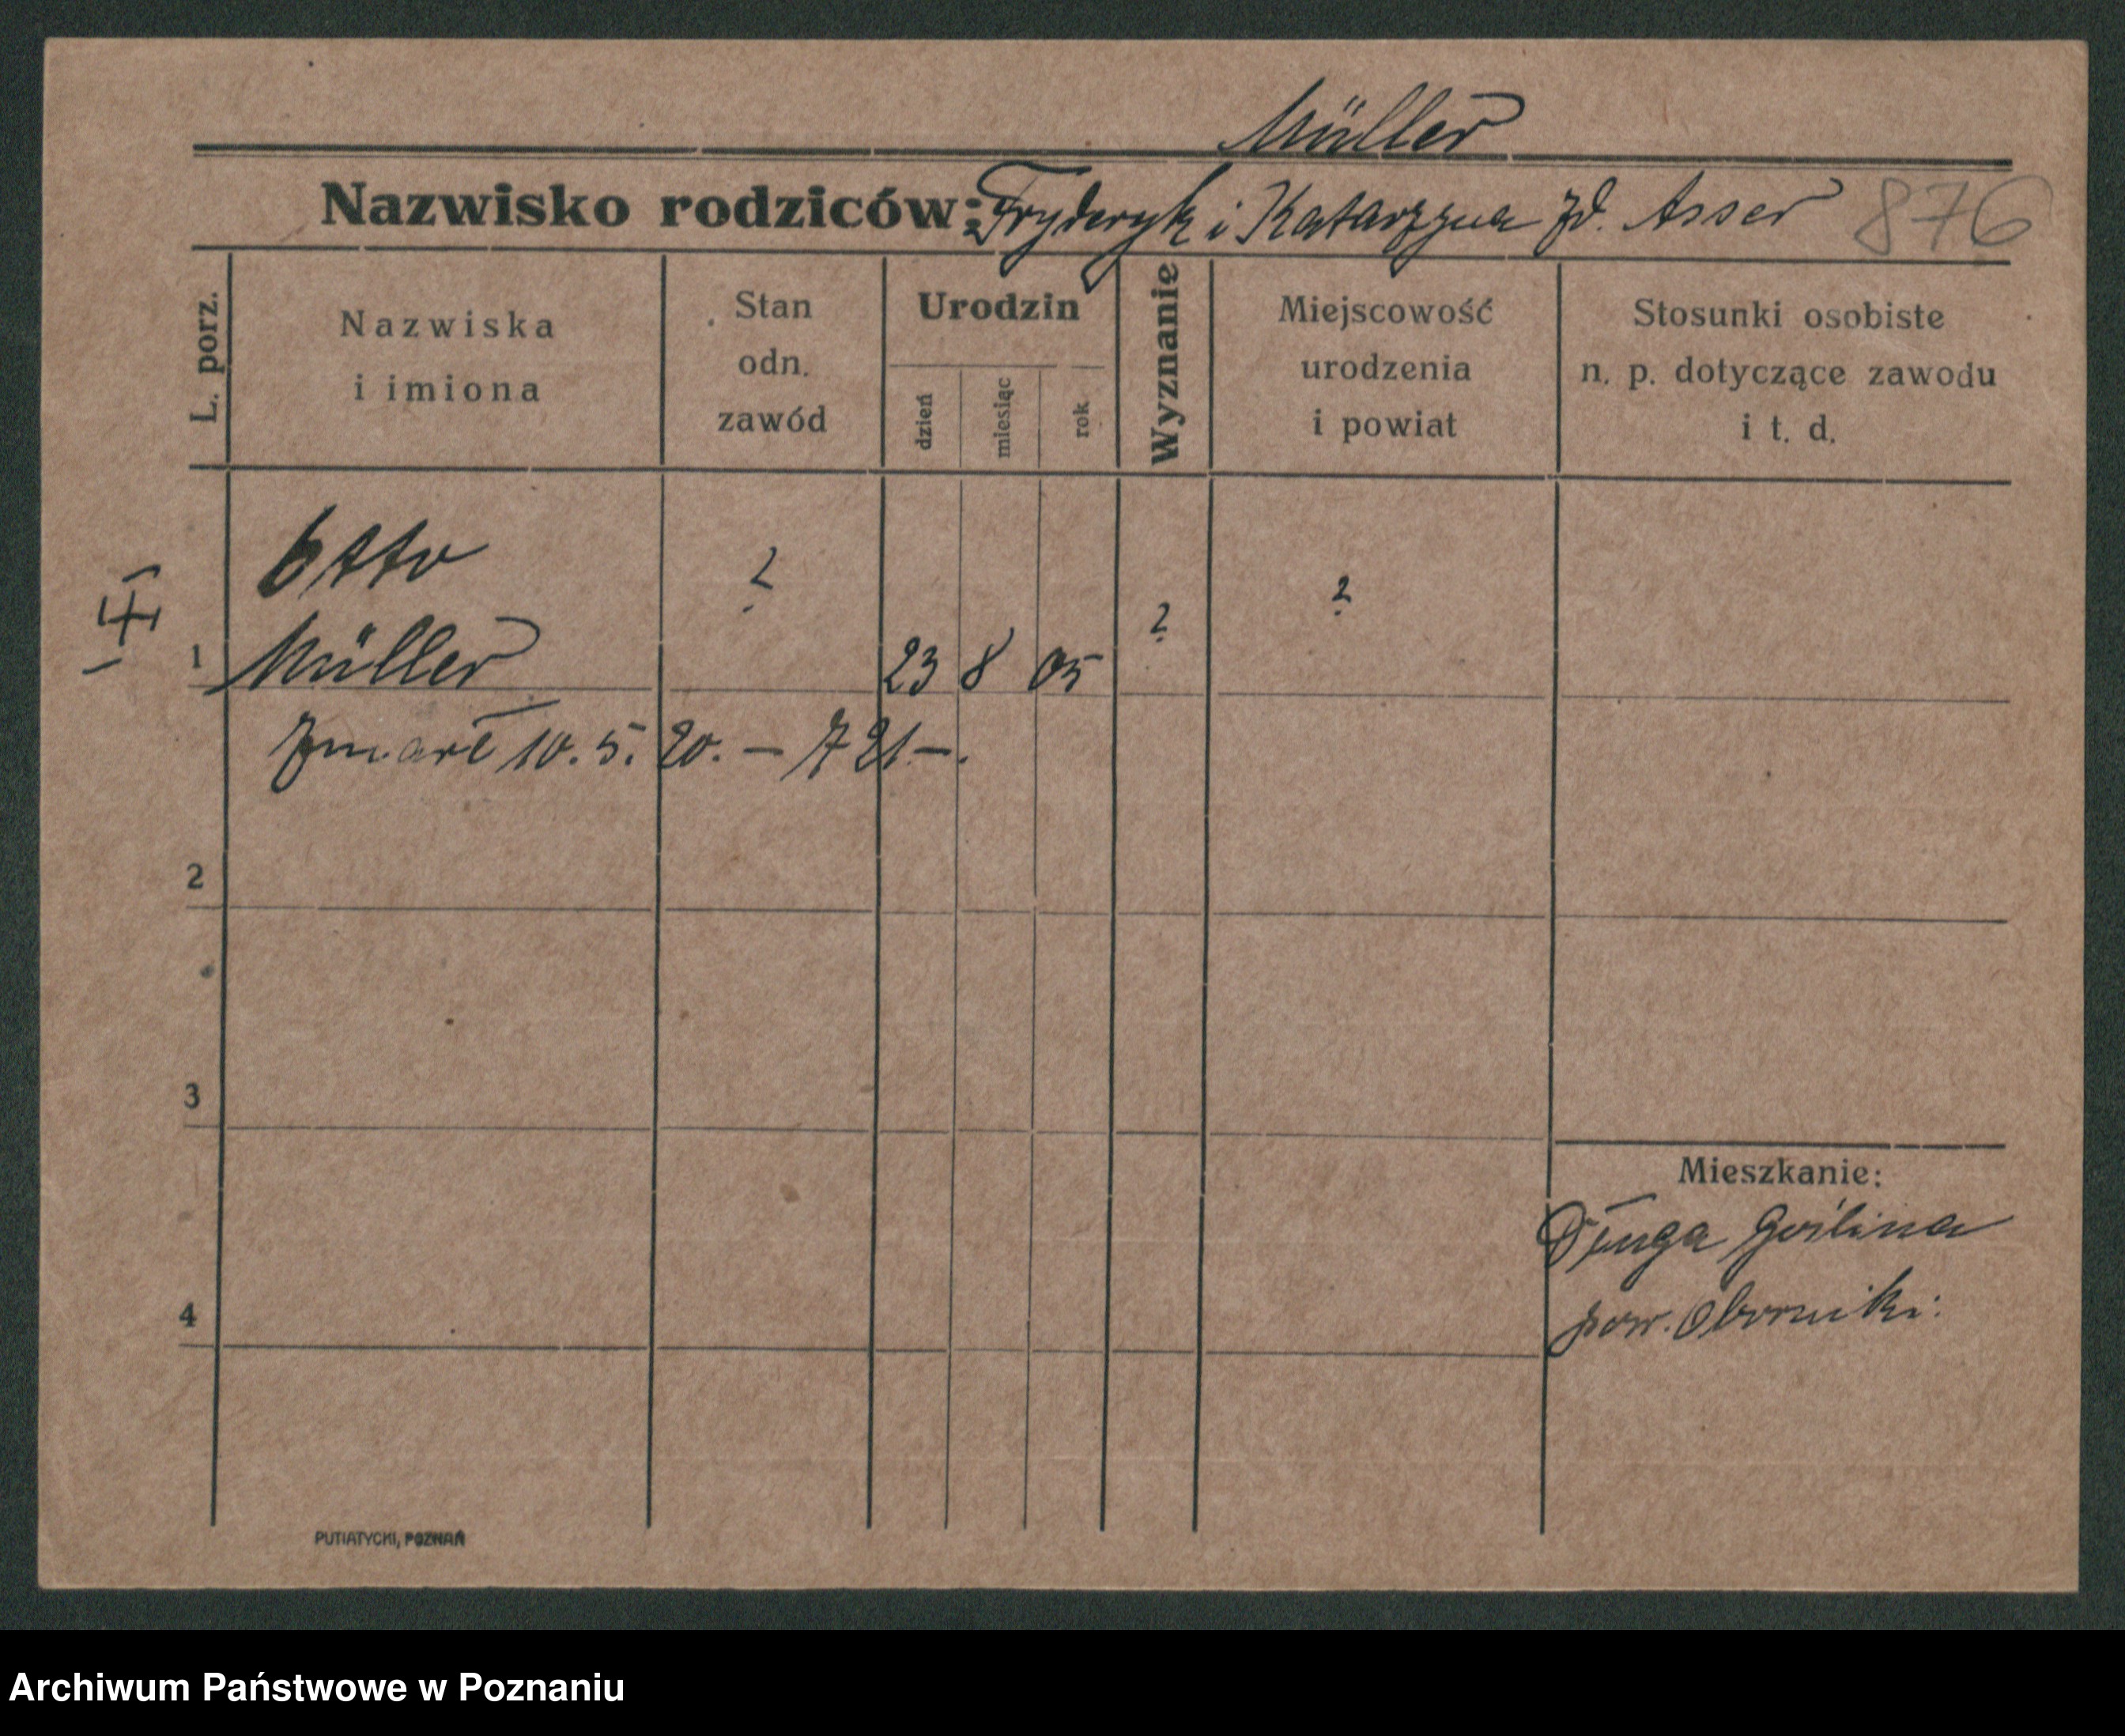 Müller
Nazwisko rodziców: Fryderyk i Katarzyna zd. Asser 876
L. porz.
Nazwiska
i imiona
Stan
odn.
zawód
Urodzin
dzień
miesiąc
rok
Wyznanie
Miejscowość
urodzenia
i powiat
Stosunki osobiste
n. p. dotyczące zawodu
i t. d.
Otto
? ? ?
1 Müller 23 8 05
zmarł 10. 5. 20. –
2
3
Mieszkanie:
Długa Goślina
4 pow. Oborniki.
PUTIATYCKI, POZNAŃ
Archiwum Państwowe w Poznaniu